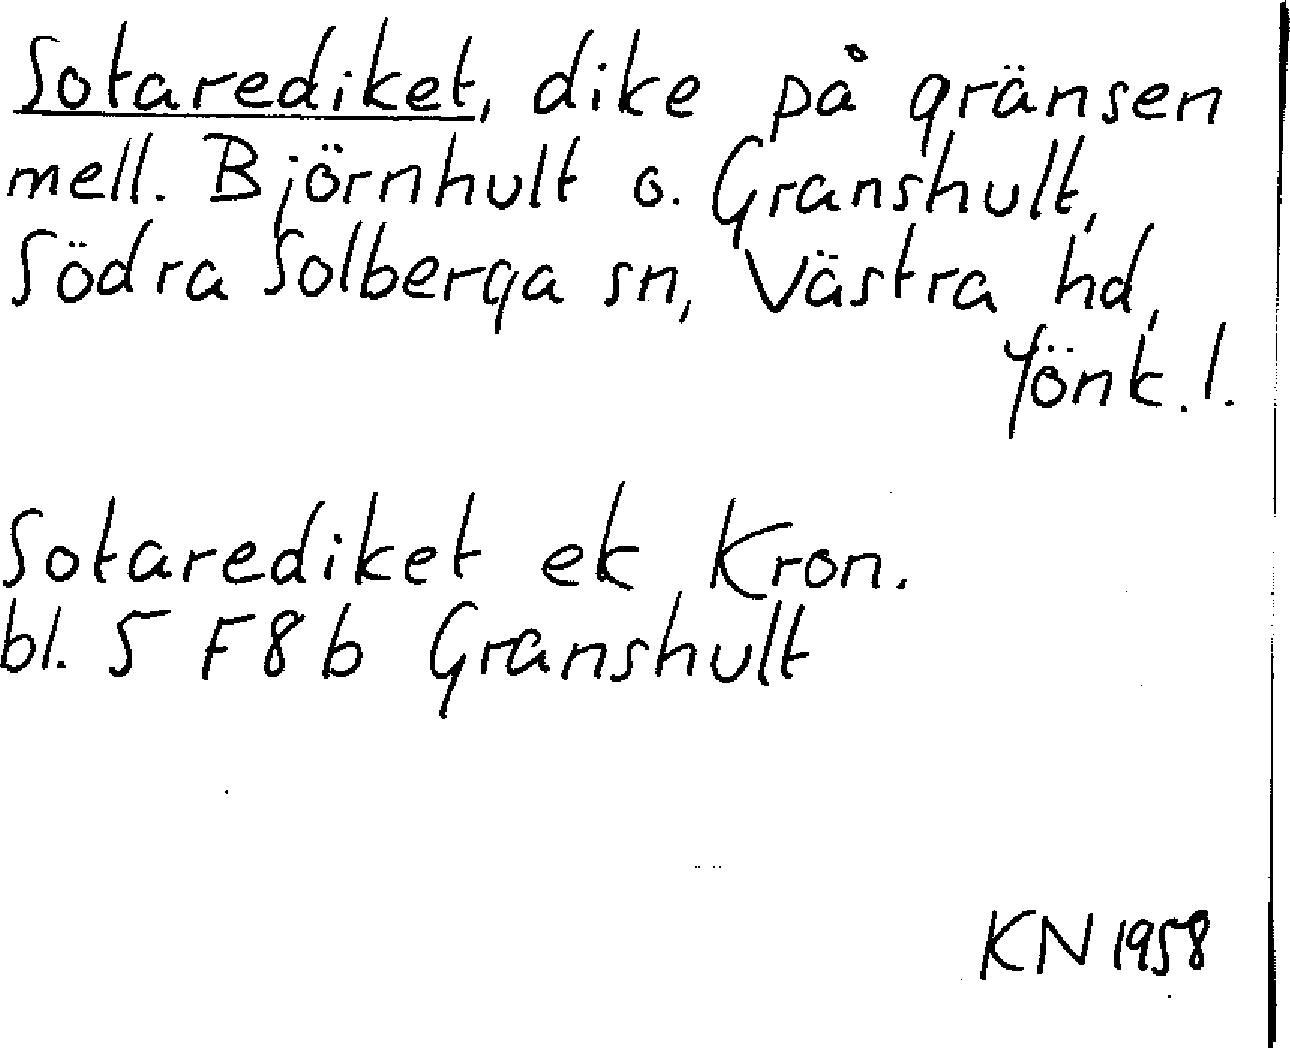 Sotarediket, dike på gränsen
mell. Björnhult o. Granshult,
Södra Solberga sn, Västra hd,
Jönk. l.
Sotarediket ek Kron.
bl. 5 F 8 b Granshult
KN 1958